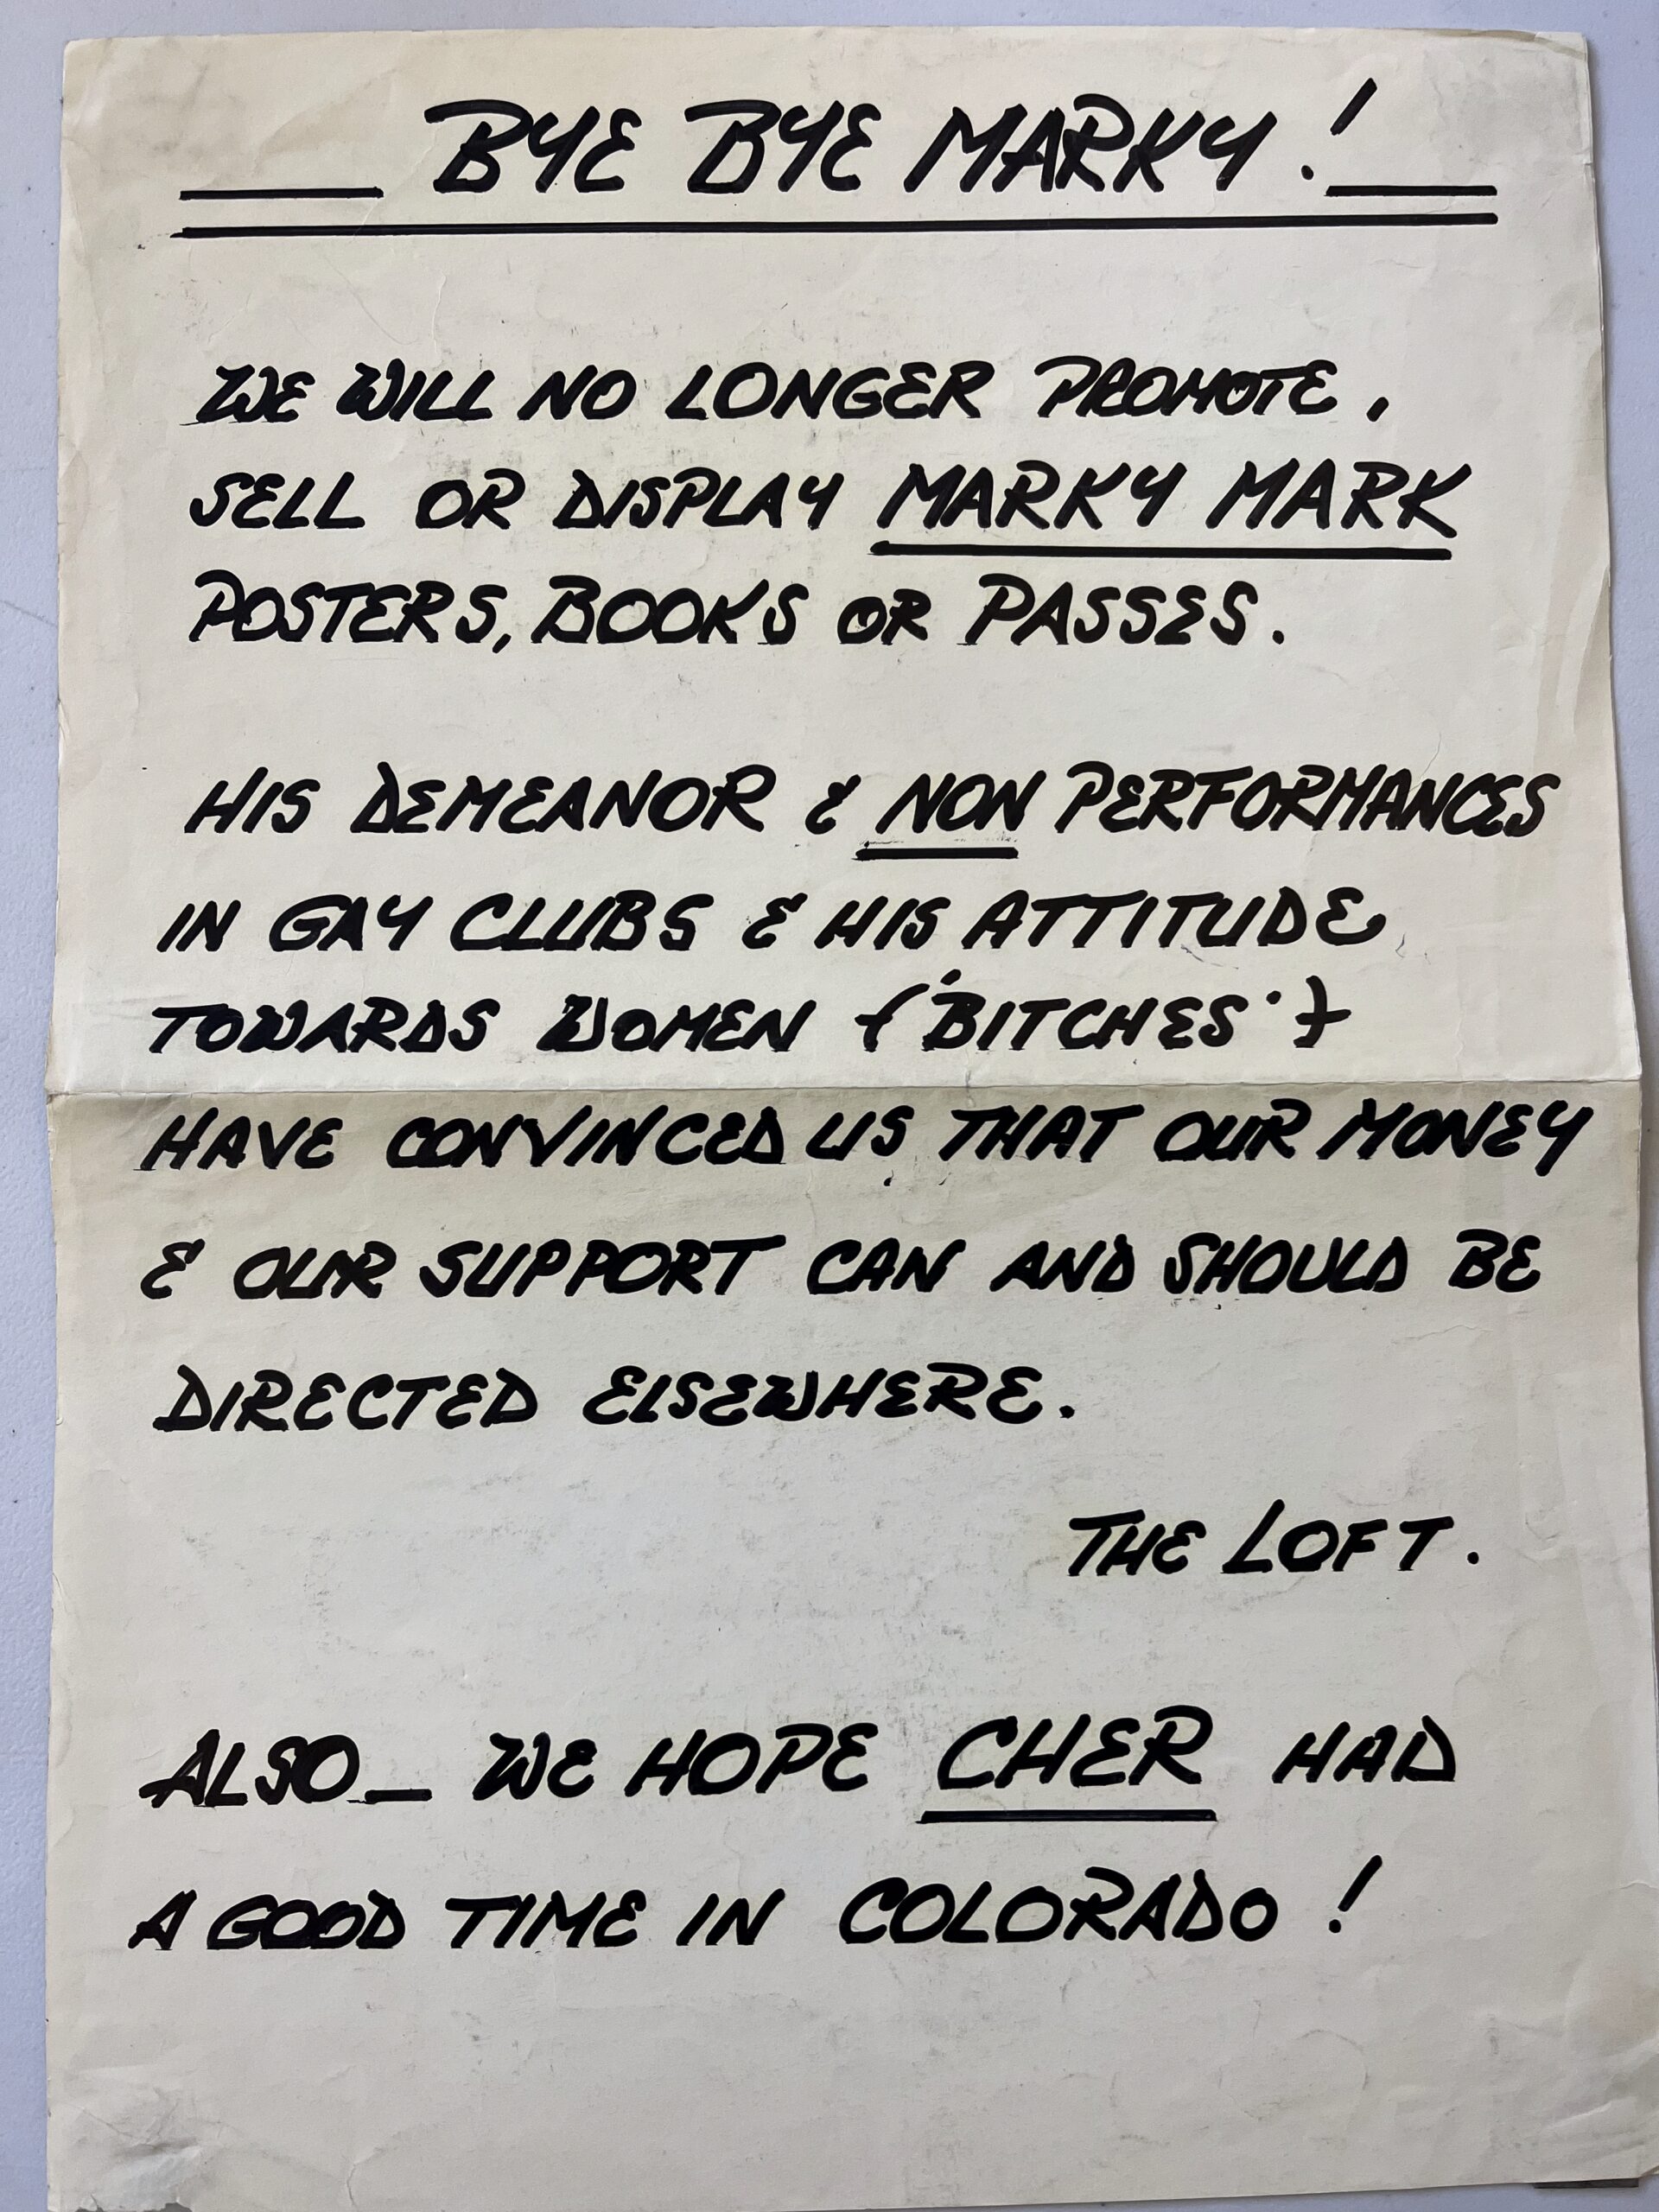 BYE BYE MARKY!
WE WILL NO LONGER PROMOTE,
SELL OR DISPLAY MARKY MARK
POSTERS, BOOKS OR PASSES.
HIS DEMEANOR & NON PERFORMANCES
IN GAY CLUBS & HIS ATTITUDE
TOWARDS WOMEN ('BITCHES')
HAVE CONVINCED US THAT OUR MONEY
& OUR SUPPORT CAN AND SHOULD BE
DIRECTED ELSEWHERE.
THE LOFT.
ALSO_ WE HOPE CHER HAD
A GOOD TIME IN COLORADO!